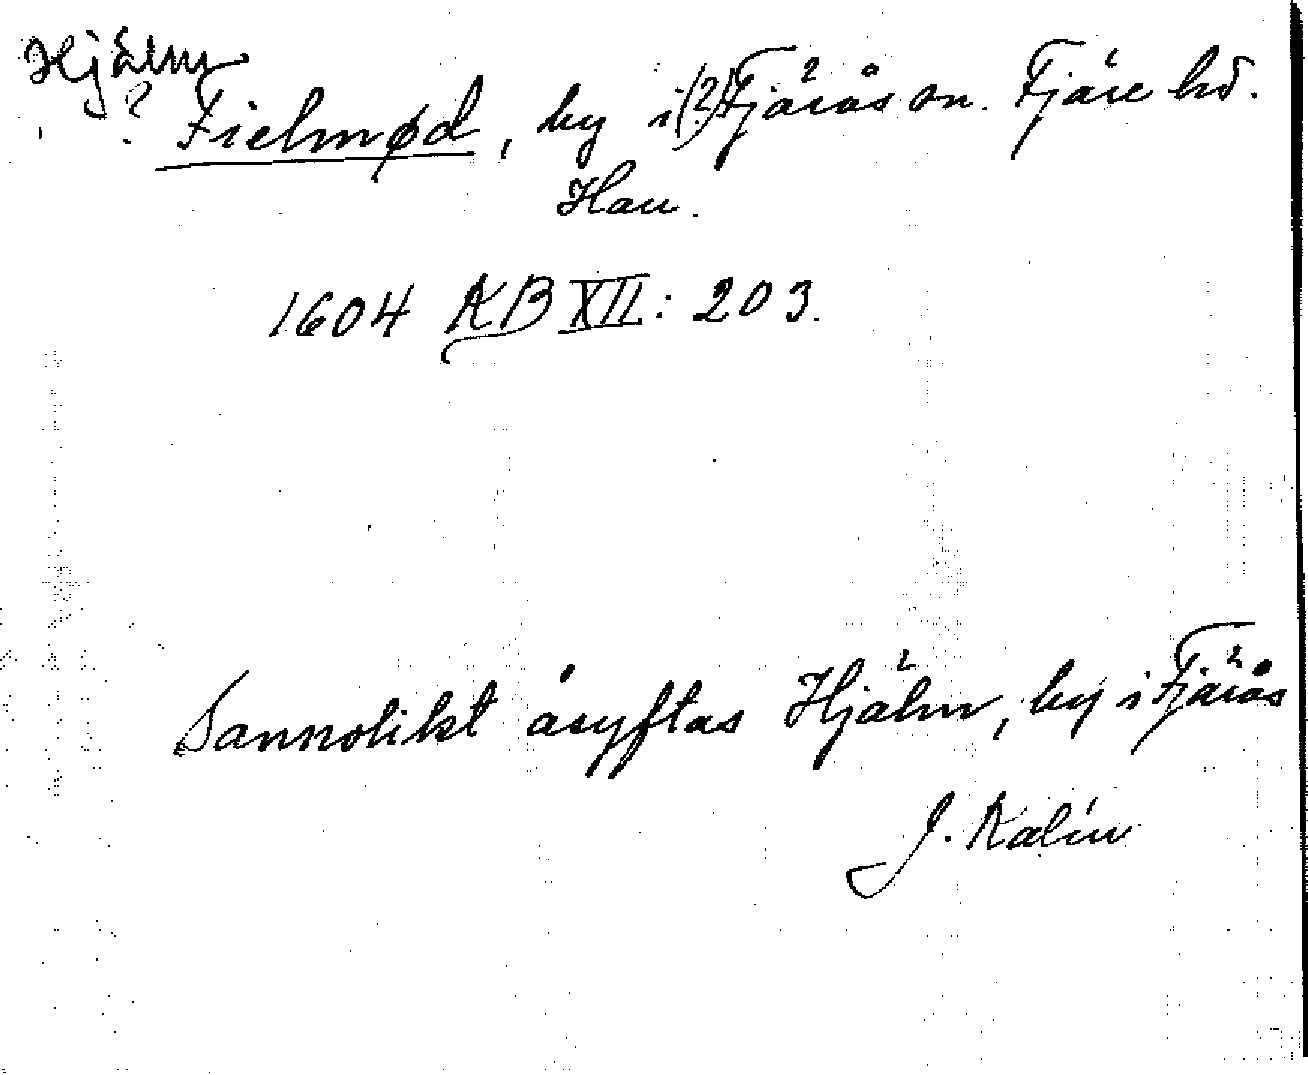 Hjälm
? Fielmød, by i (?) Fjärås sn. Fjäre hd.
Hall.
1604 KB XII: 203.
Sannolikt åsyftas Hjälm, by i Fjärås
J. Kalén